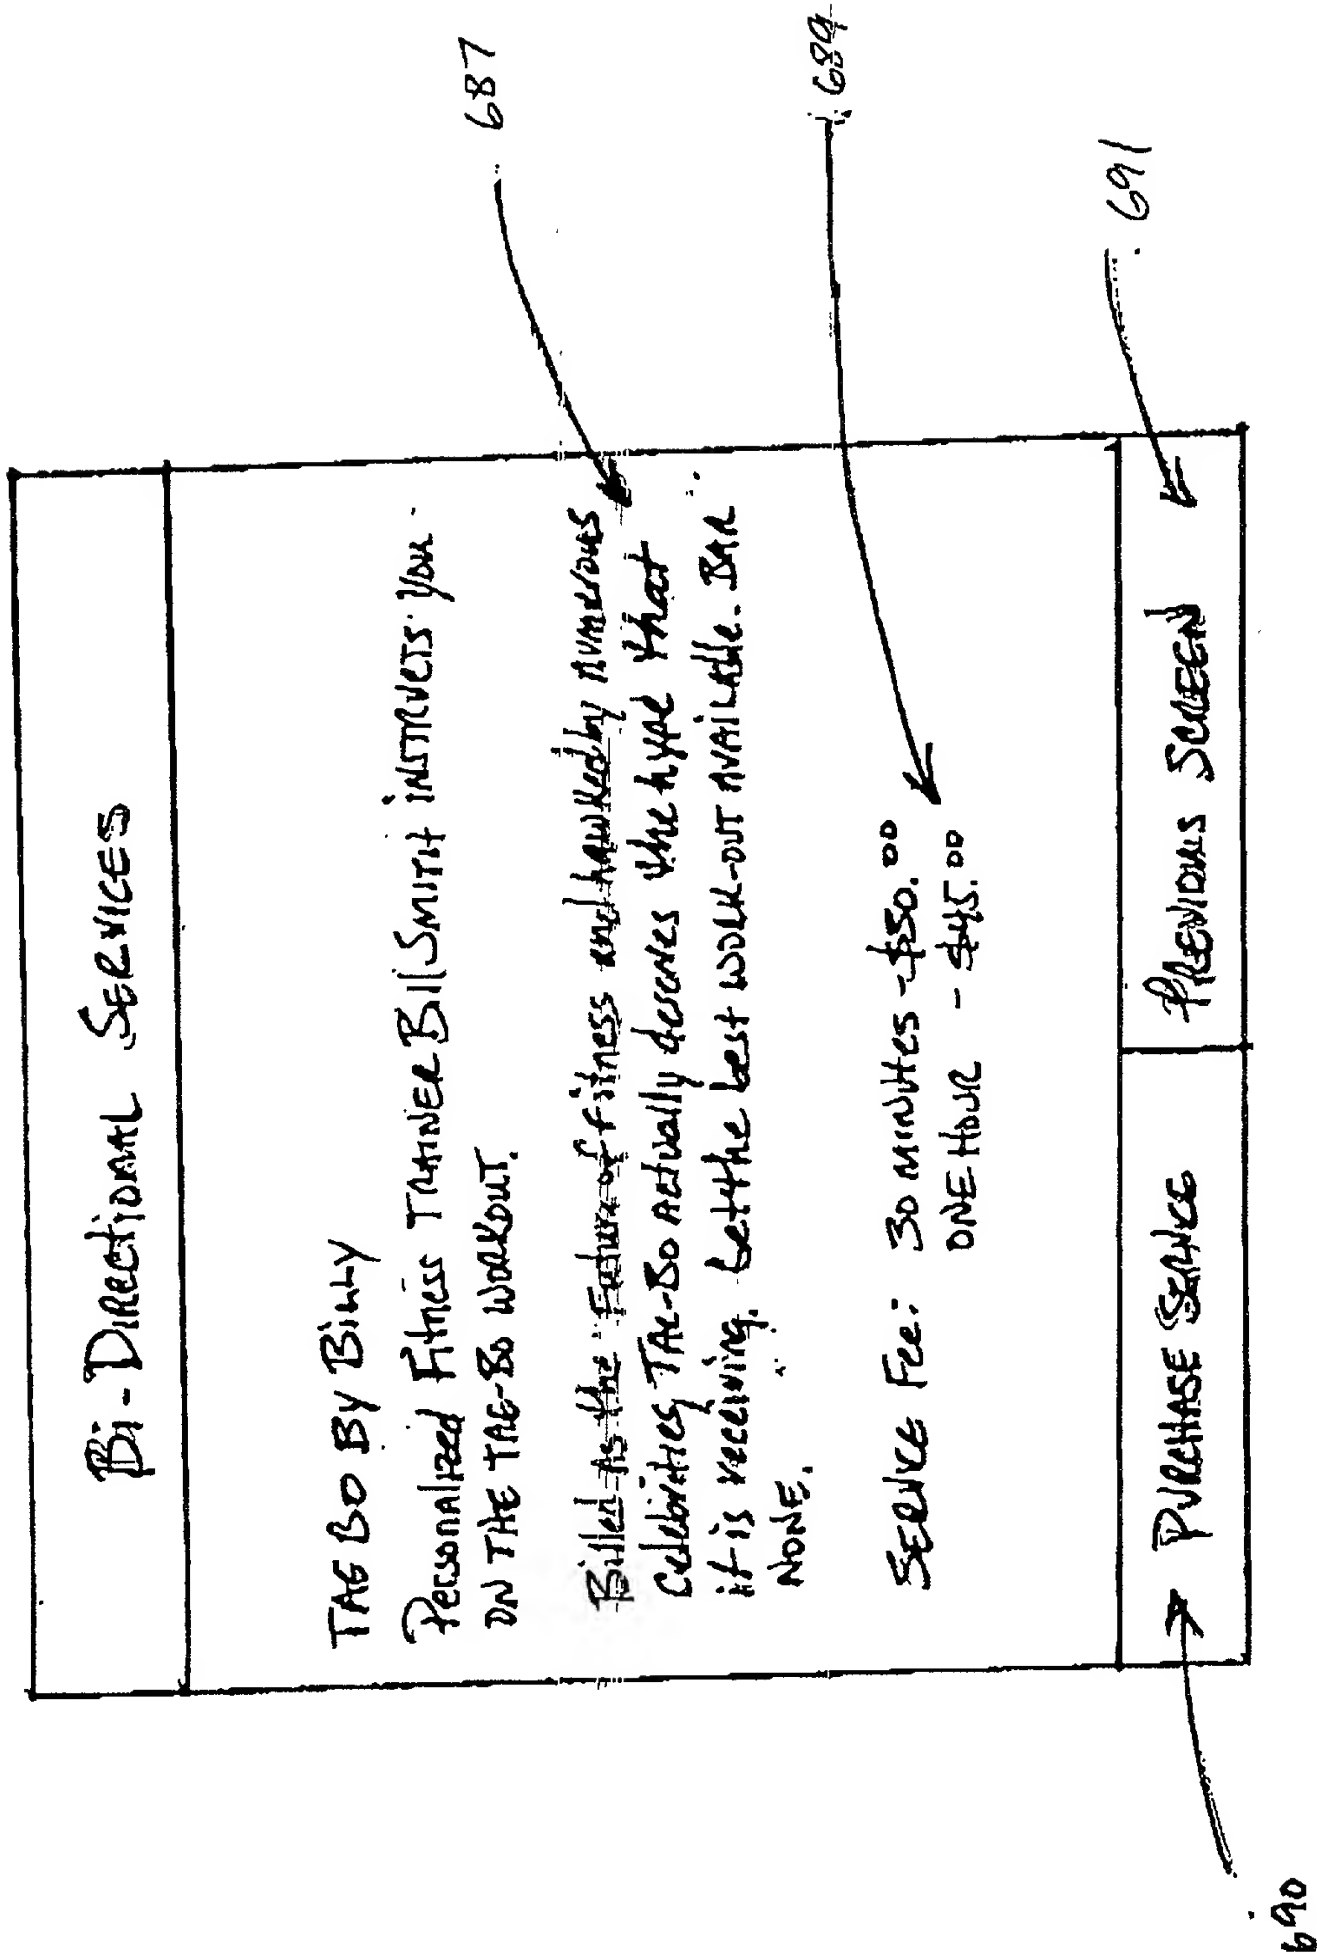 Bi-Directional Services
TAE BO BY BILLY
Personalized Fitness TRAINER Bill SMITH INSTRUCTS YOU
ON THE TAE-BO WORKOUT.
Billed As the Future of Fitness and hawked by numerous
Celebrities, TAE-Bo Actually deserves the hype that
it is receiving. Get the best WORK-OUT AVAILABLE. BAR
NONE.
SERVICE Fee: 30 MINUTES - $30.00
ONE HOUR - $45.00
PURCHASE SERVICE
PREVIOUS SCREEN
687
689
691
690